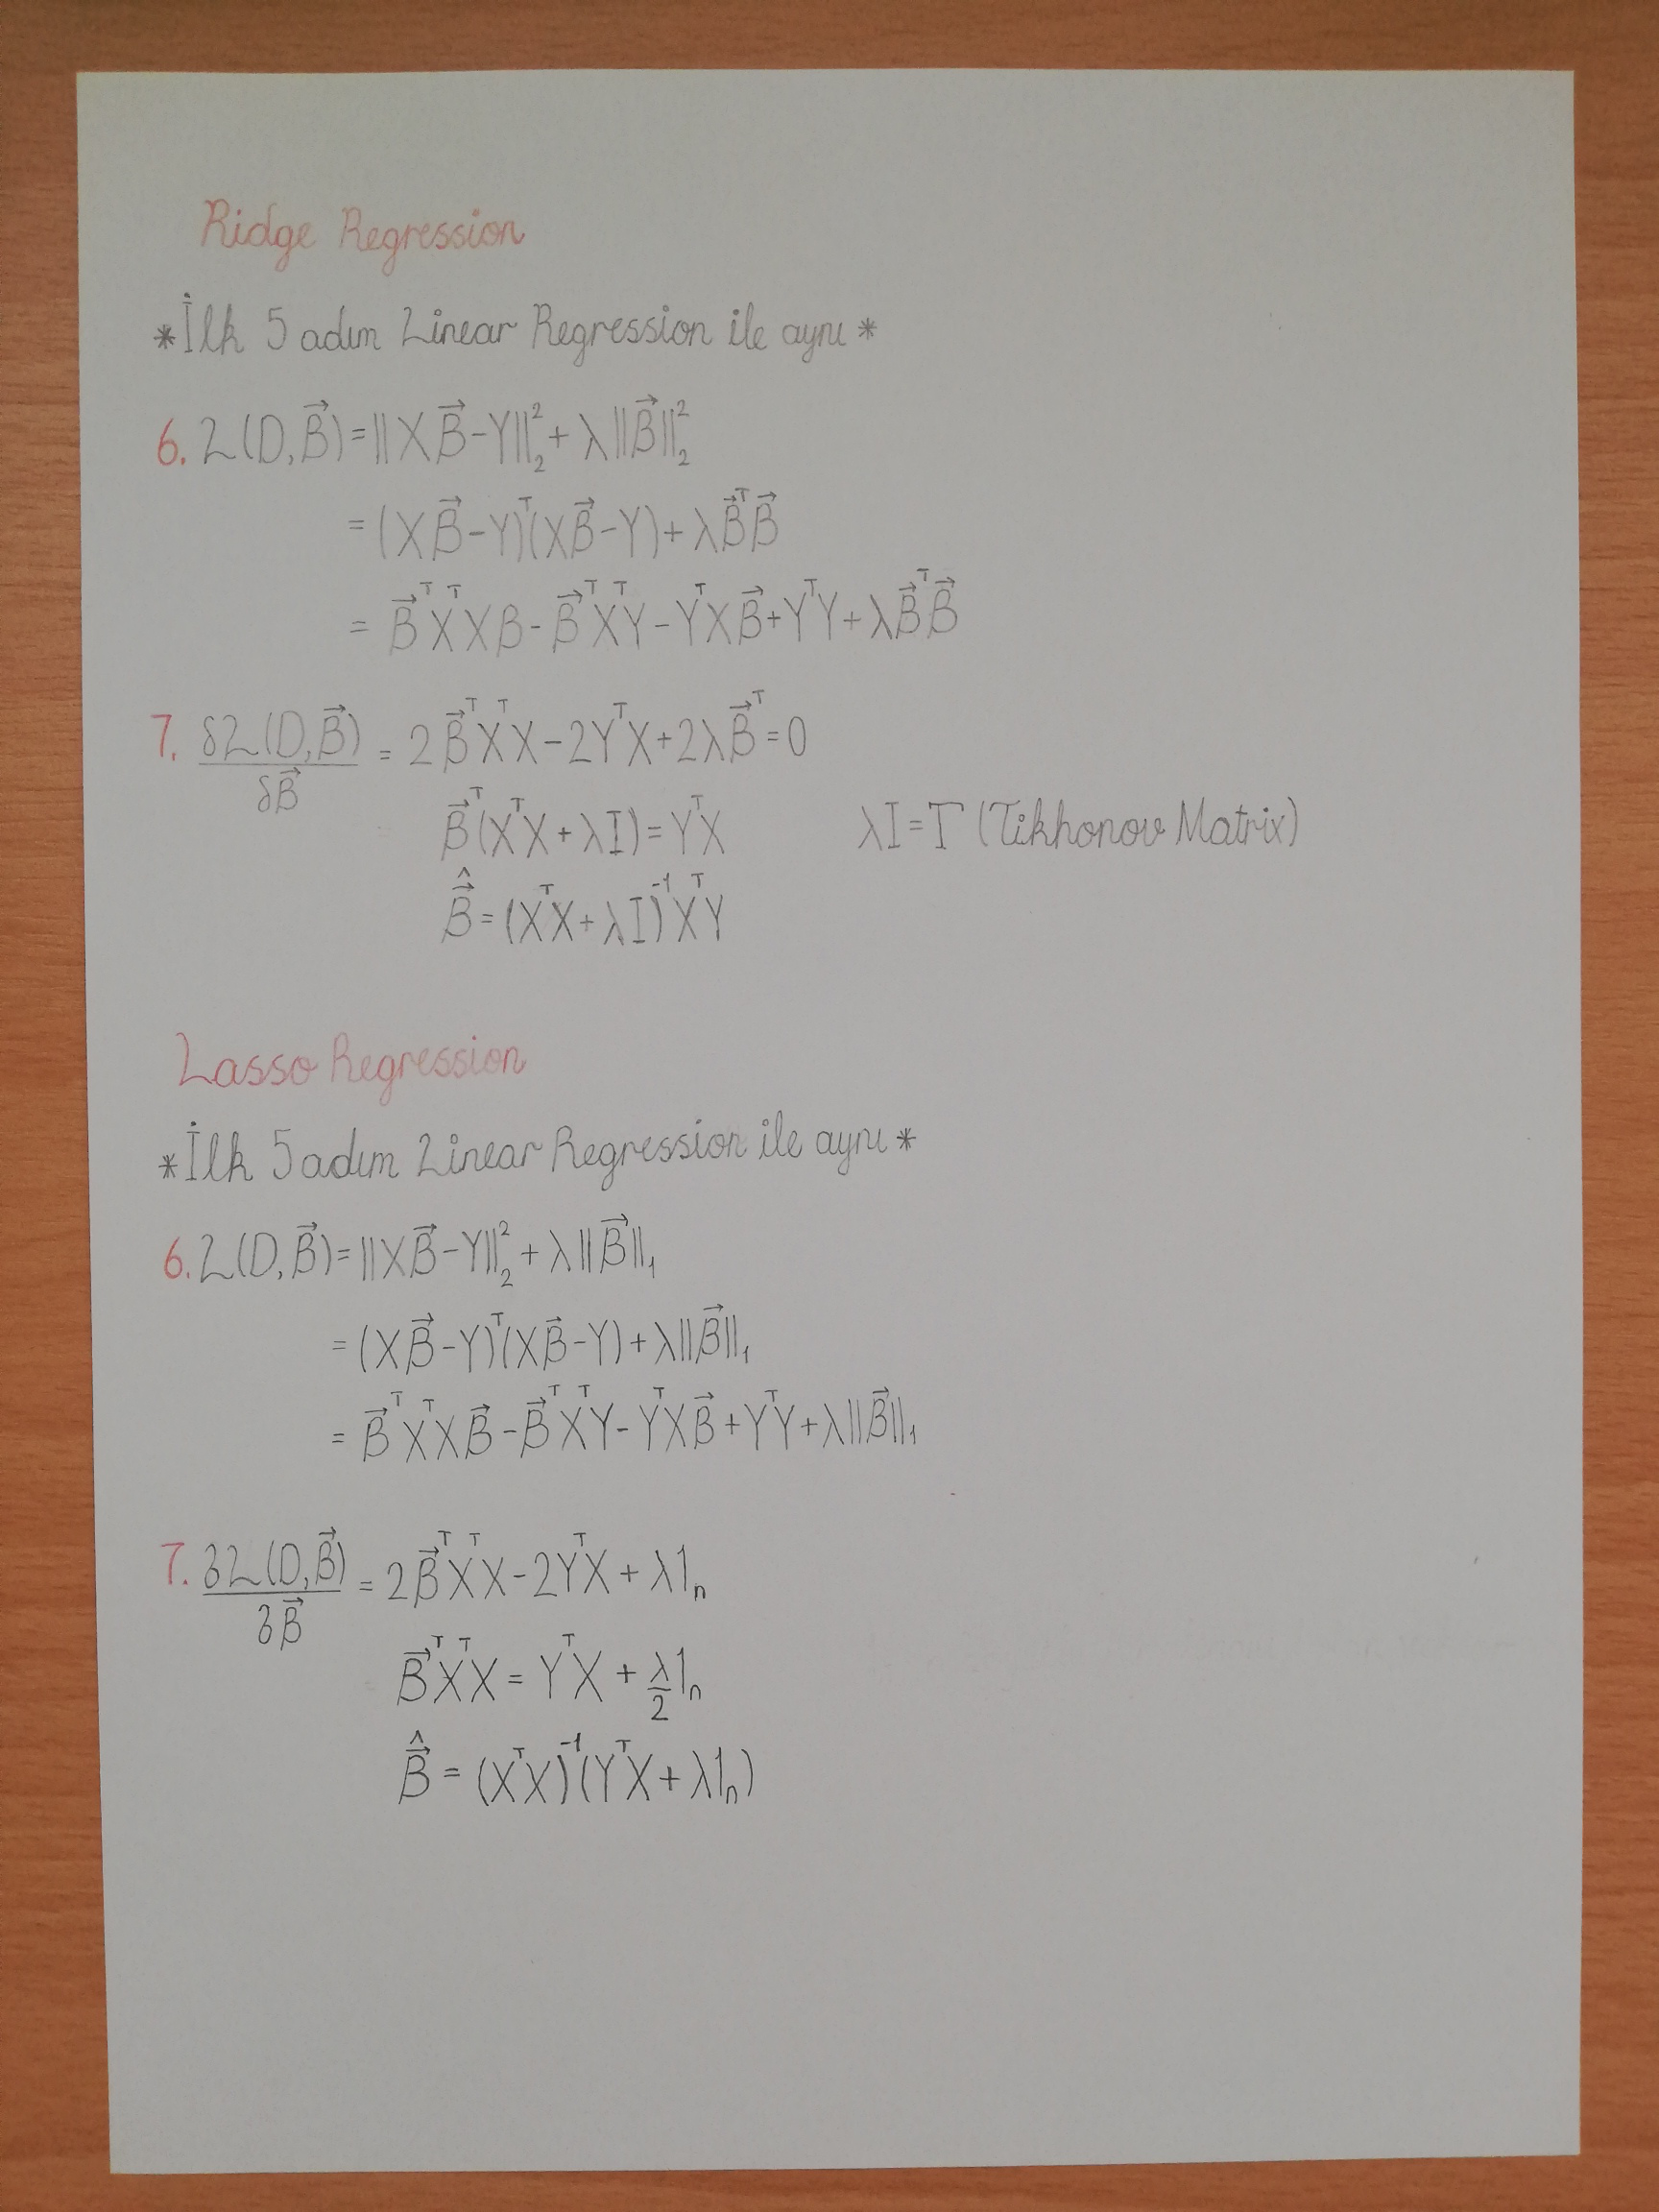 Ridge Regression
*İlk 5 adım Linear Regression ile aynı*
6. L(D,B⃗)=||XB⃗-Y||₂²+λ||B⃗||₂²
=(XB⃗-Y)ᵀ(XB⃗-Y)+λB⃗ᵀB⃗
= B⃗ᵀXᵀXB-B⃗ᵀXᵀY-YᵀXB⃗+YᵀY+λB⃗ᵀB⃗
7. δL(D,B⃗)/δB⃗ = 2B⃗ᵀXᵀX-2YᵀX+2λB⃗ᵀ=0
B⃗ᵀ(XᵀX+λI)=YᵀX λI=Γ (Tikhonov Matrix)
B⃗̂=(XᵀX+λI)⁻¹XᵀY
Lasso Regression
*İlk 5 adım Linear Regression ile aynı*
6. L(D,B⃗)=||XB⃗-Y||₂²+λ||B⃗||₁
=(XB⃗-Y)ᵀ(XB⃗-Y)+λ||B⃗||₁
= B⃗ᵀXᵀXB⃗-B⃗ᵀXᵀY-YᵀXB⃗+YᵀY+λ||B⃗||₁
7. ∂L(D,B⃗)/∂B⃗ = 2B⃗ᵀXᵀX-2YᵀX+λ1ₙ
B⃗ᵀXᵀX = YᵀX + λ/2 1ₙ
B⃗̂ = (XᵀX)⁻¹(YᵀX+λ1ₙ)